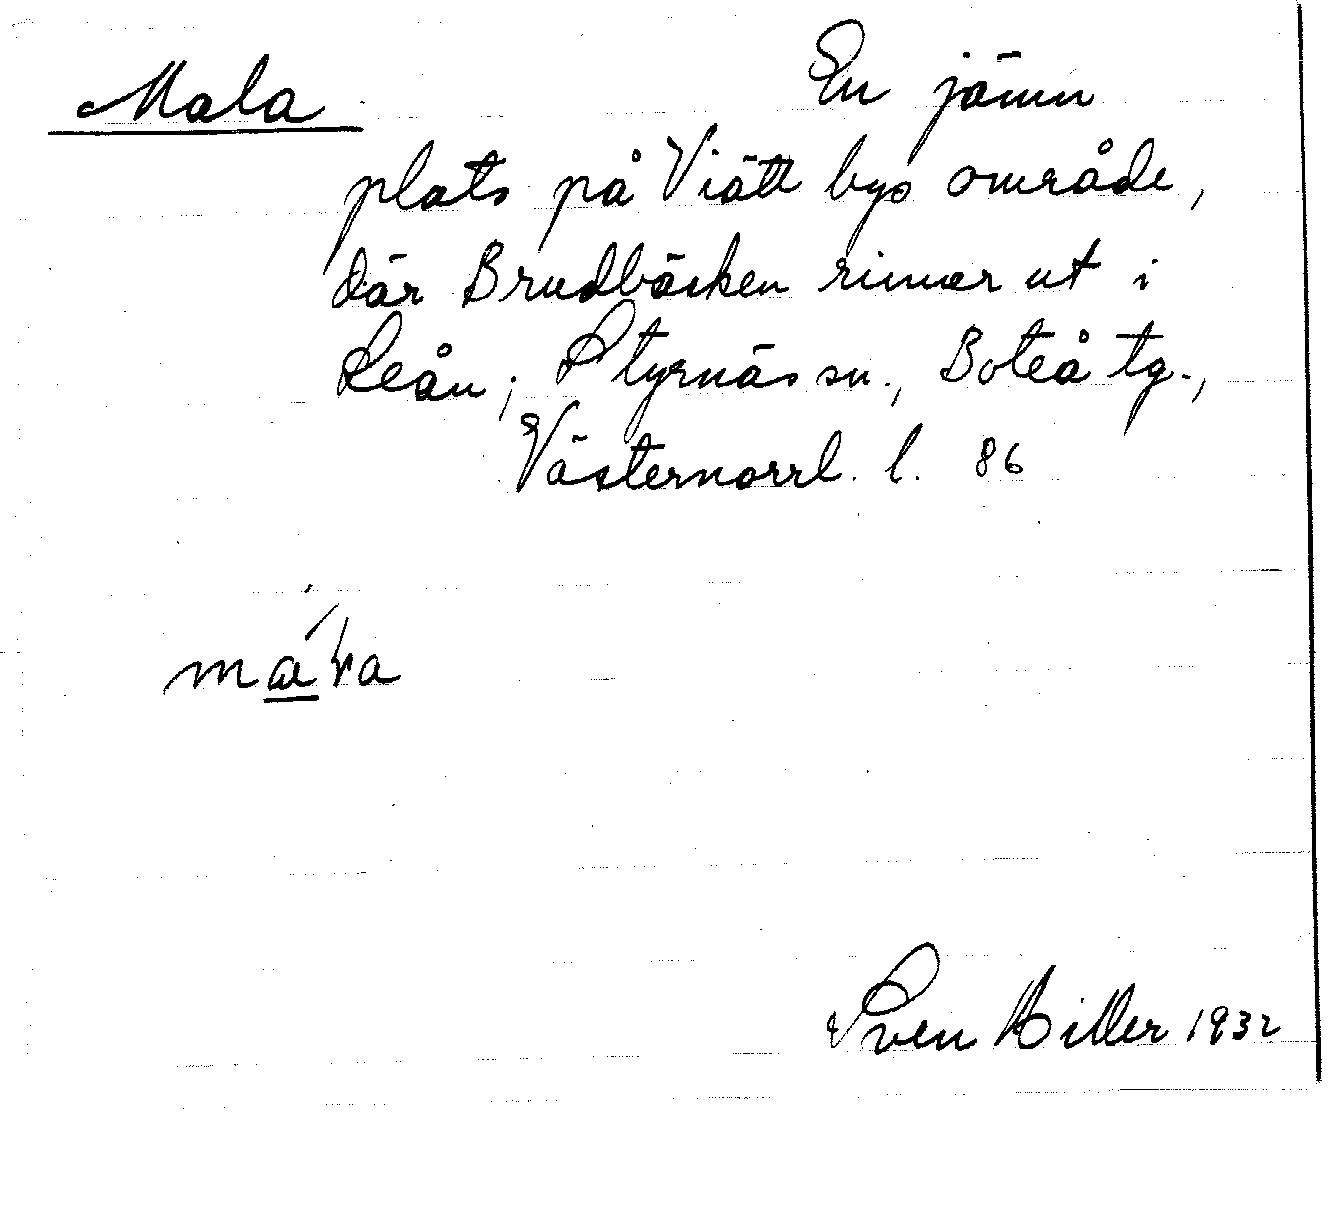 Mala En jämn
plats på Viätt bys område,
där Brudbäcken rinner ut i
Leån; Styrnäs sn., Boteå tg.,
Västernorrl. l. 86
Sven Hiller 1932